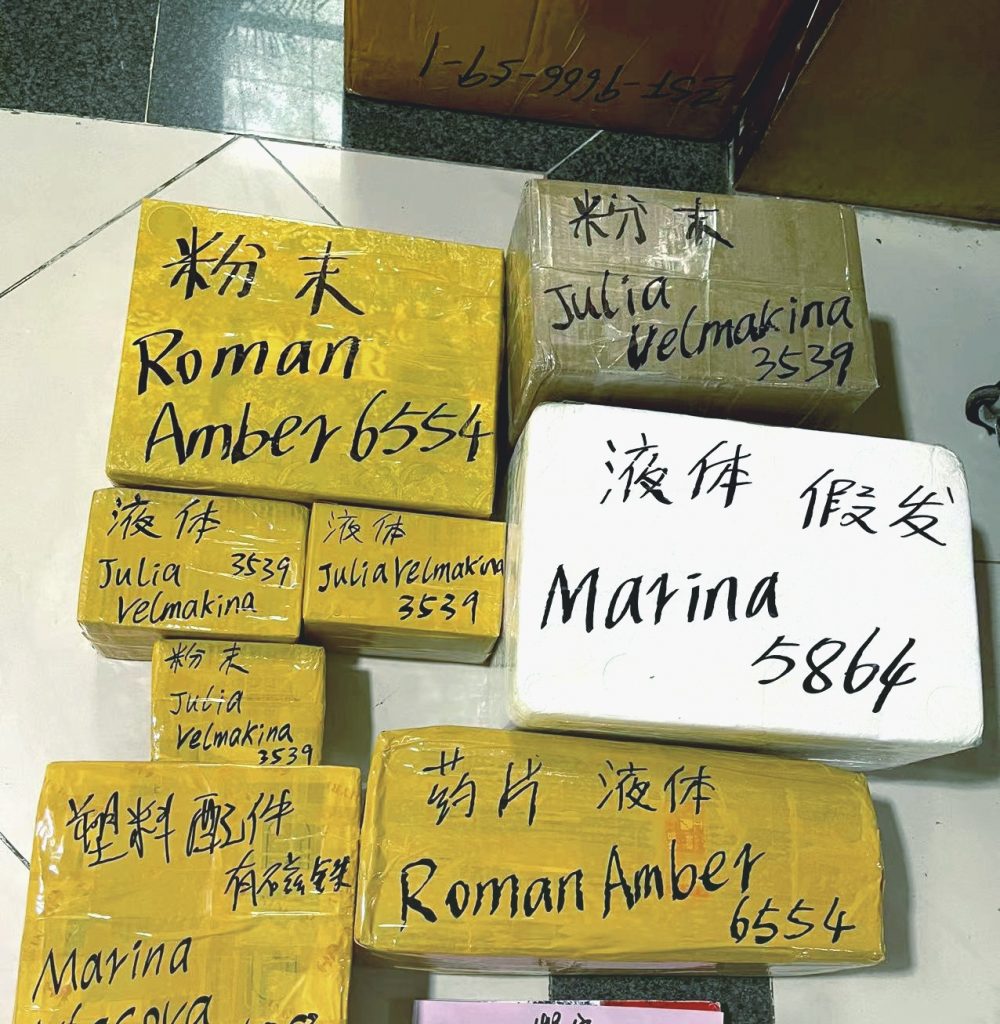 ZST-9666-59-1
粉末
Roman
Amber 6554
粉末
Julia
Velmakina
3539
液体 假发
Marina
5864
液体
Julia 3539
Velmakina
液体
Julia Velmakina
3539
粉末
Julia
Velmakina
3539
塑料配件
有磁铁
Marina
药片 液体
Roman Amber
6554